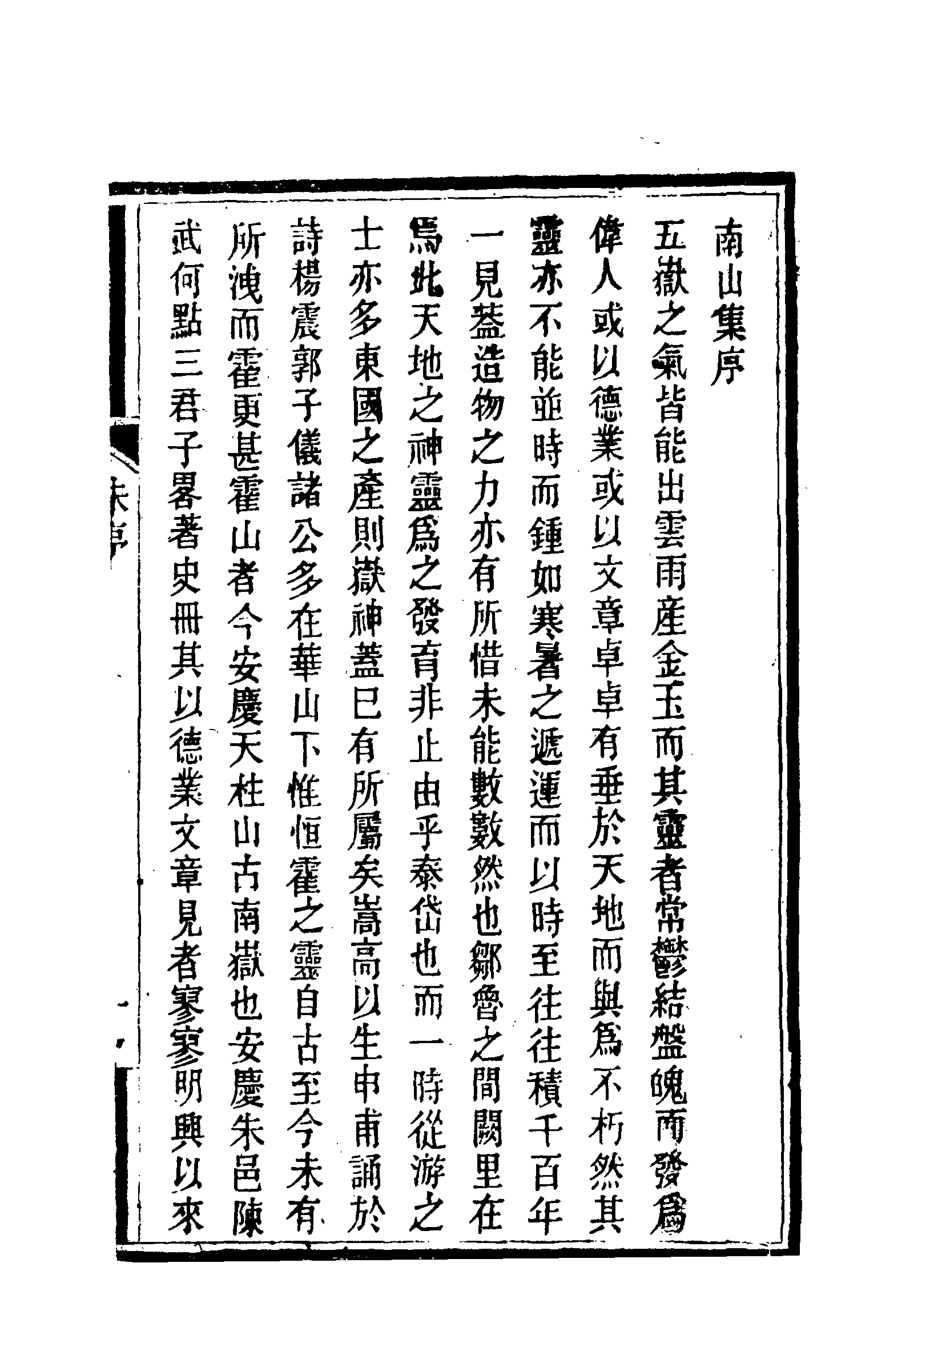 南山集序
五嶽之氣皆能出雲雨産金玉而其靈者常鬱結盤魄而發爲
偉人或以德業或以文章卓卓有垂於天地而與爲不朽然其
靈亦不能並時而鍾如寒暑之遞運而以時至往往積千百年
一見葢造物之力亦有所惜未能數數然也鄒魯之間闕里在
焉此天地之神靈爲之發育非止由乎泰岱也而一時從游之
士亦多東國之產則嶽神蓋巳有所屬矣嵩高以生申甫誦於
詩楊震郭子儀諸公多在華山下惟恒霍之靈自古至今未有
所洩而霍更甚霍山者今安慶天柱山古南嶽也安慶朱邑陳
武何點三君子畧著史冊其以德業文章見者寥寥明興以來
朱序
一